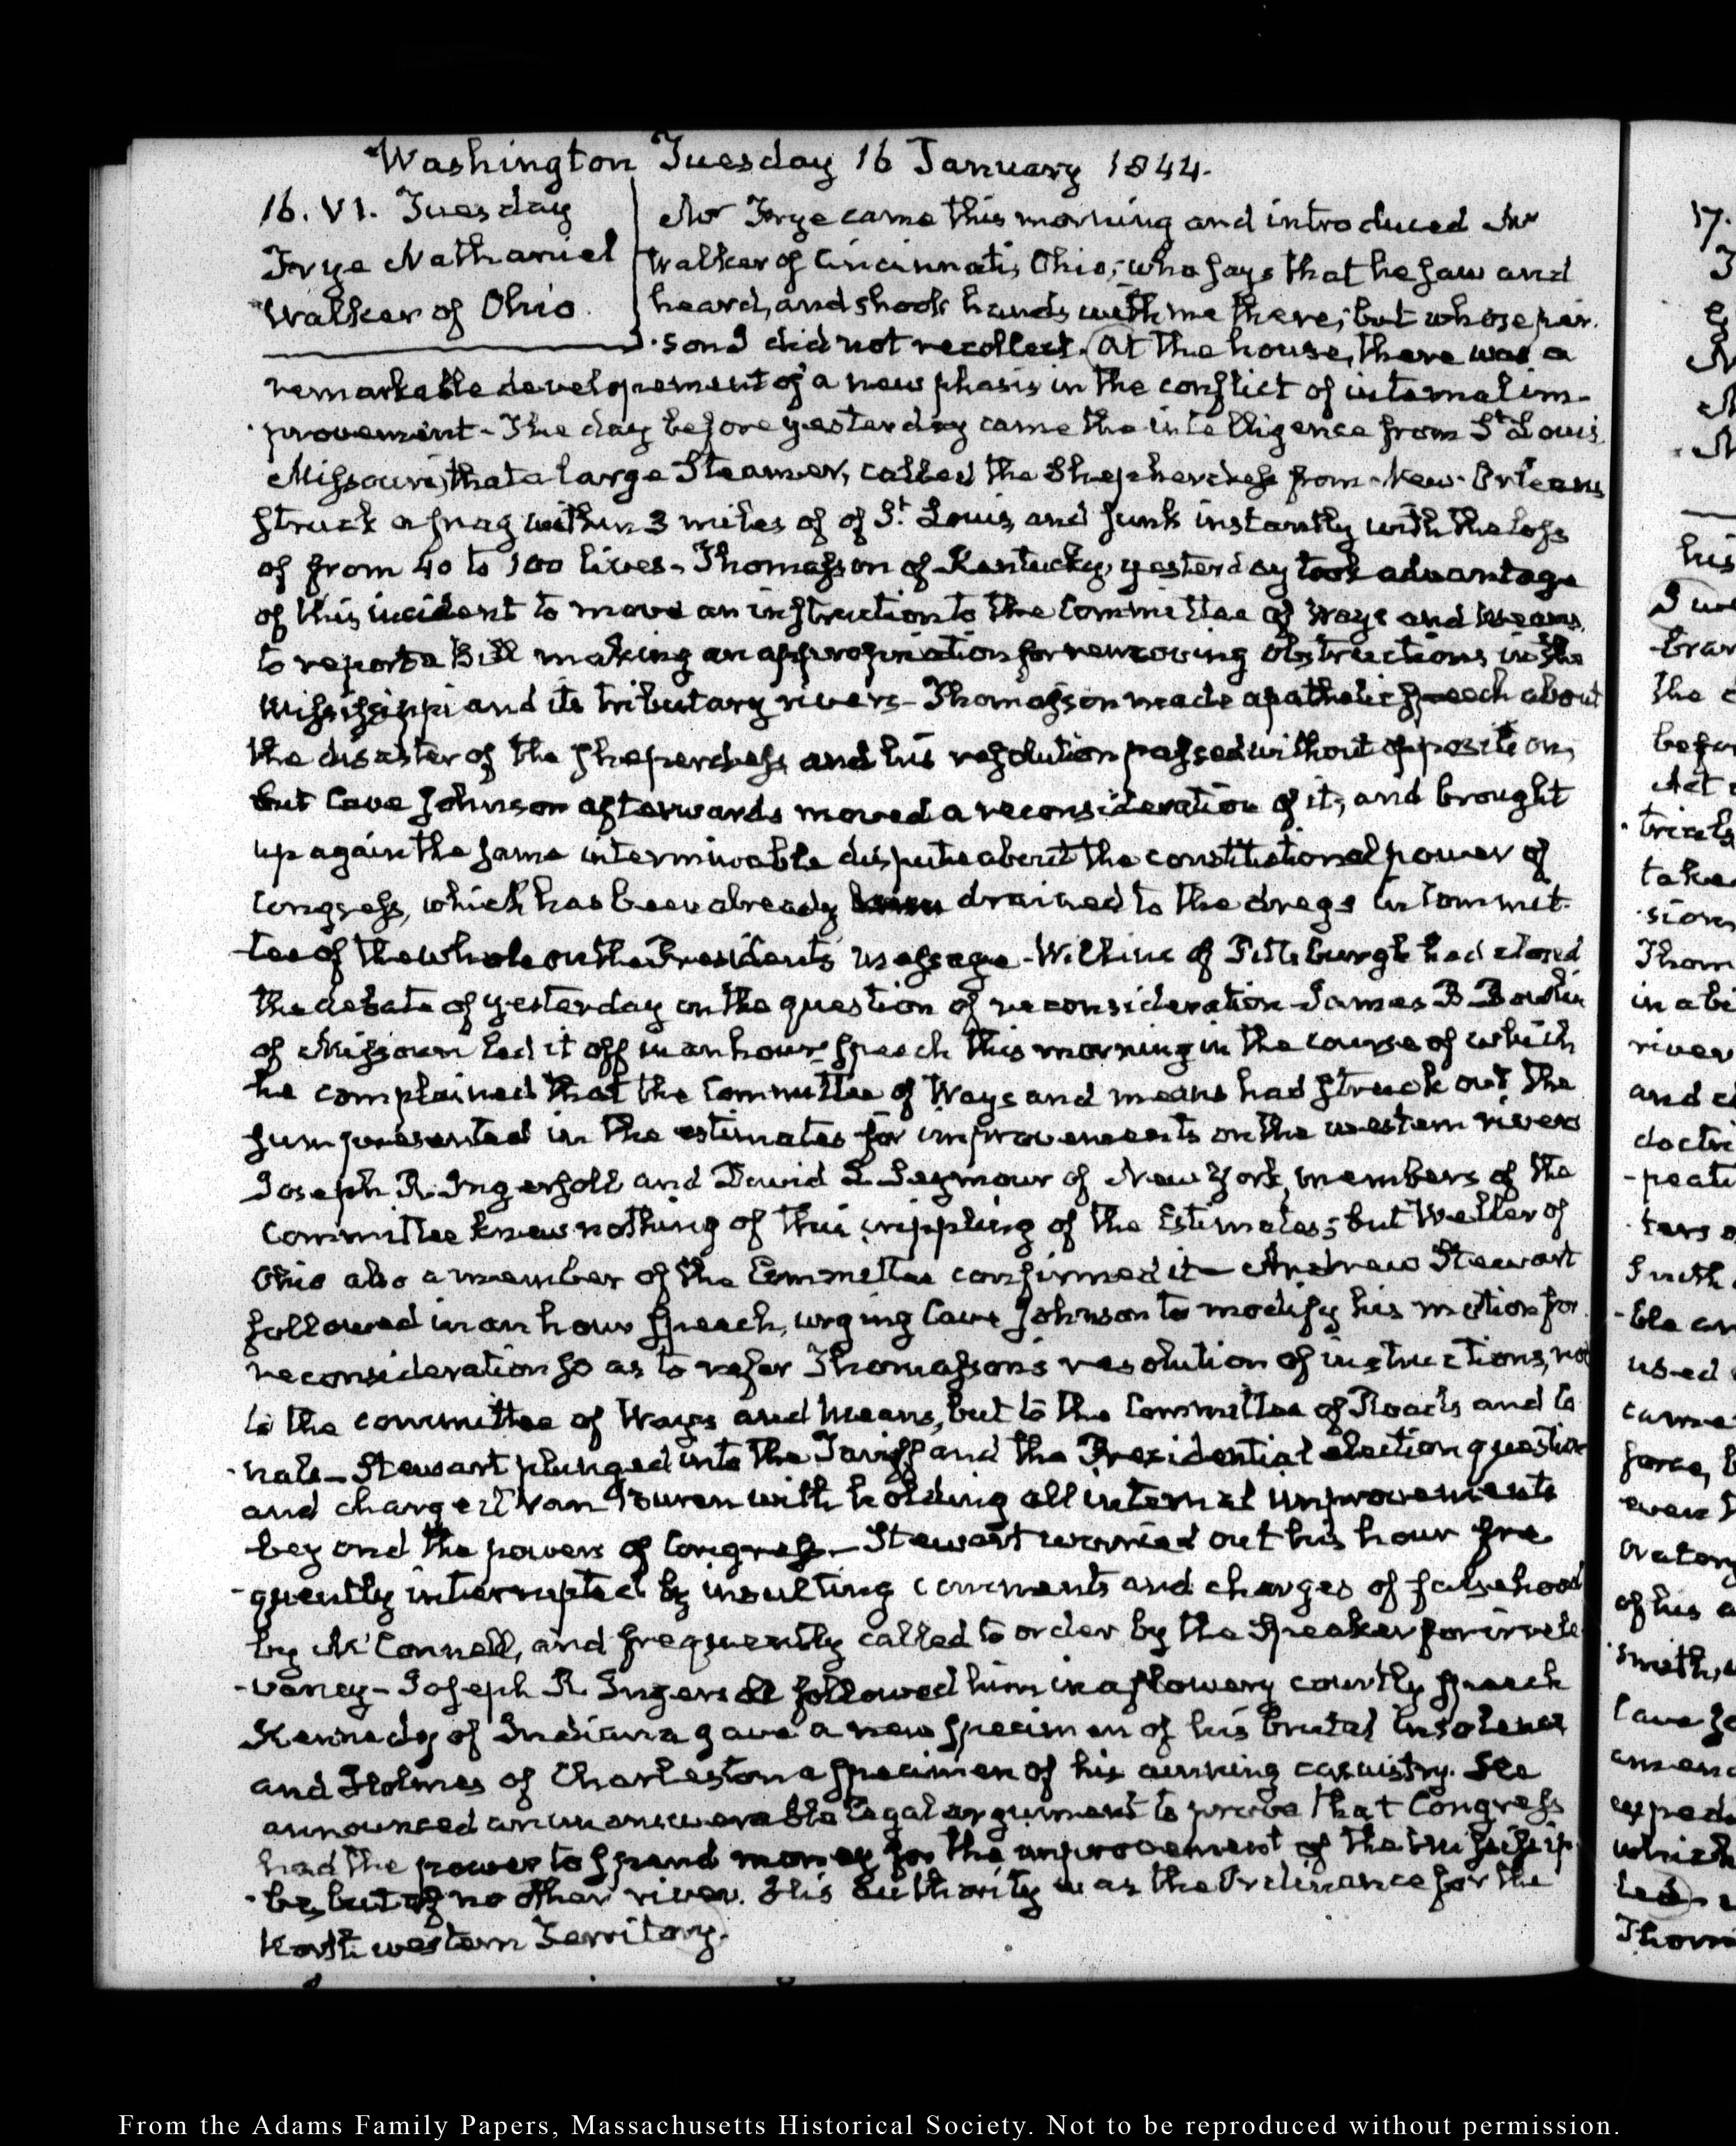 Washington Tuesday 16 January 1844.
16. VI. Tuesday
Frye Nathaniel
Walker of Ohio.
Mr Frye came this morning and introduced Mr
Walker of Cincinnati, Ohio, who says that he saw and
heard, and shook hands with me there; but whose per-
-son I did not recollect. At the house, there was a
remarkable developement of a new phasis in the conflict of internal im-
-provement - The day before yesterday came the intelligence from St Louis
Missouri, that a large Steamer, called the Shepherdess from New-Orleans
struck a snag within 3 miles of of St. Louis, and sunk instantly with the loss
of from 40 to 100 lives - Thomasson of Kentucky, yesterday took advantage
of this incident to move an instruction to the Committee of Ways and Means,
to report a Bill making an appropriation for removing obstructions in the
Mississippi and its tributary rivers - Thomasson made a pathetic speech about
the disaster of the Sheperdess, and his resolution passed without opposition,
but Cave Johnson afterwards moved a reconsideration of it, and brought
up again the same interminable dispute about the constitutional power of
Congress, which has been already drained to the dregs in Commit-
-tee of the whole on the President's message - Wilkins of Pittsburgh had closed
the debate of yesterday on the question of reconsideration - James B Bowlin
of Missouri led it off in an hour speech this morning in the course of which
he complained that the Committee of Ways and means had struck out the
sum presented in the estimates for improvements on the western rivers
Joseph R. Ingersoll and David L Seymour of New York, members of the
Committee knew nothing of this crippling of the Estimates; but Weller of
Ohio also a member of the Committee confirmed it - Andrew Stewart
followed in an hour speech, urging Cave Johnson to modify his motion for
reconsideration so as to refer Thomasson's resolution of instructions, not
to the committee of Ways and Means, but to the Committee of Roads and Ca
-nals - Stewart plunged into the Tariff and the Presidential election question
and charged Van Buren with holding all internal improvements
beyond the powers of Congress - Stewart worried out his hour fre
-quently interrupted by insulting comments and charges of falsehood
by McConnell, and frequently called to order by the Speaker for irrele
-vancy - Joseph R. Ingersoll followed him in a flowery courtly speech
Kennedy of Indiana gave a new specimen of his brutal insolence
and Holmes of Charleston a specimen of his cunning casuistry. He
announced an unanswerable legal argument to prove that Congress
had the power to spend money for the improvement of the Mississip
-pi, but of no other river. His authority was the Ordinance for the
North western Territory.
17.
his
the
Act
take
Thom
river
and
-peati
-ble
used
came
force,
of his
smith,
which
led
From the Adams Family Papers, Massachusetts Historical Society. Not to be reproduced without permission.